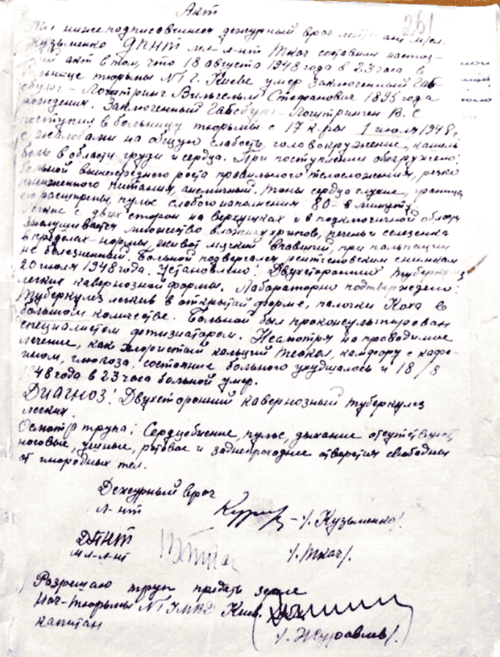 Акт
261
Мы нижеподписавшиеся дежурный врач лейтенант м/сл.
Кузьменко ДПНТ мл. л-нт Ткач составили настоя-
щий акт в том, что 18 августа 1948 года в 23 часа в
больнице тюрьмы №1 г. Киева умер заключенный Габ-
сбург-Лотринген Вильгельм Стефанович 1895 года
рождения. Заключенный Габсбург-Лотринген В. С
поступил в больницу тюрьмы с 17 к-ры 1 июля 1948 г.
с жалобами на общую слабость головокружение, кашель
боли в области груди и сердца. При поступлении обнаружено:
больной вышесреднего роста правильного телосложения, резко
пониженного питания, анемичный. Тоны сердца глухие, граница
расширены, пульс слабого наполнения 80 в минуту.
Легкие с двух сторон на верхушках и в подключичной области
выслушивается множество влажных хрипов, печень и селезенка
в пределах нормы, живот мягкий впавший, при пальпации
не болезненный. Больной подвергался рентгеновским снимкам
20 июля 1948 года. Установлено: Двухсторонний туберкулез
легких кавернозной формы. Лабораторно подтверждено:
Туберкулез легких в открытой форме, палочки Коха в
большом количестве. Больной был проконсультирован
специалистом фтизиатором. Несмотря на проводимое
лечение, как хлористый кальций камфору с кофе-
ином, глюкоза. состояние больного ухудшалось и 18/8
1948 года в 23 часа больной умер.
Диагноз: Двухсторонний кавернозный туберкулез
легких.
Осмотр трупа: Сердцебиение, пульс, дыхание отсутствуют
носовые, ушные, ротовое и заднепроходные отверстия свободны
от инородных тел.
Дежурный врач
л-нт /Кузьменко/.
ДПНТ
мл. л-нт /Ткач/.
Разрешаю труп придать земле
Нач-тюрьмы №1 УМВД Киев.
капитан /Журавлев/.